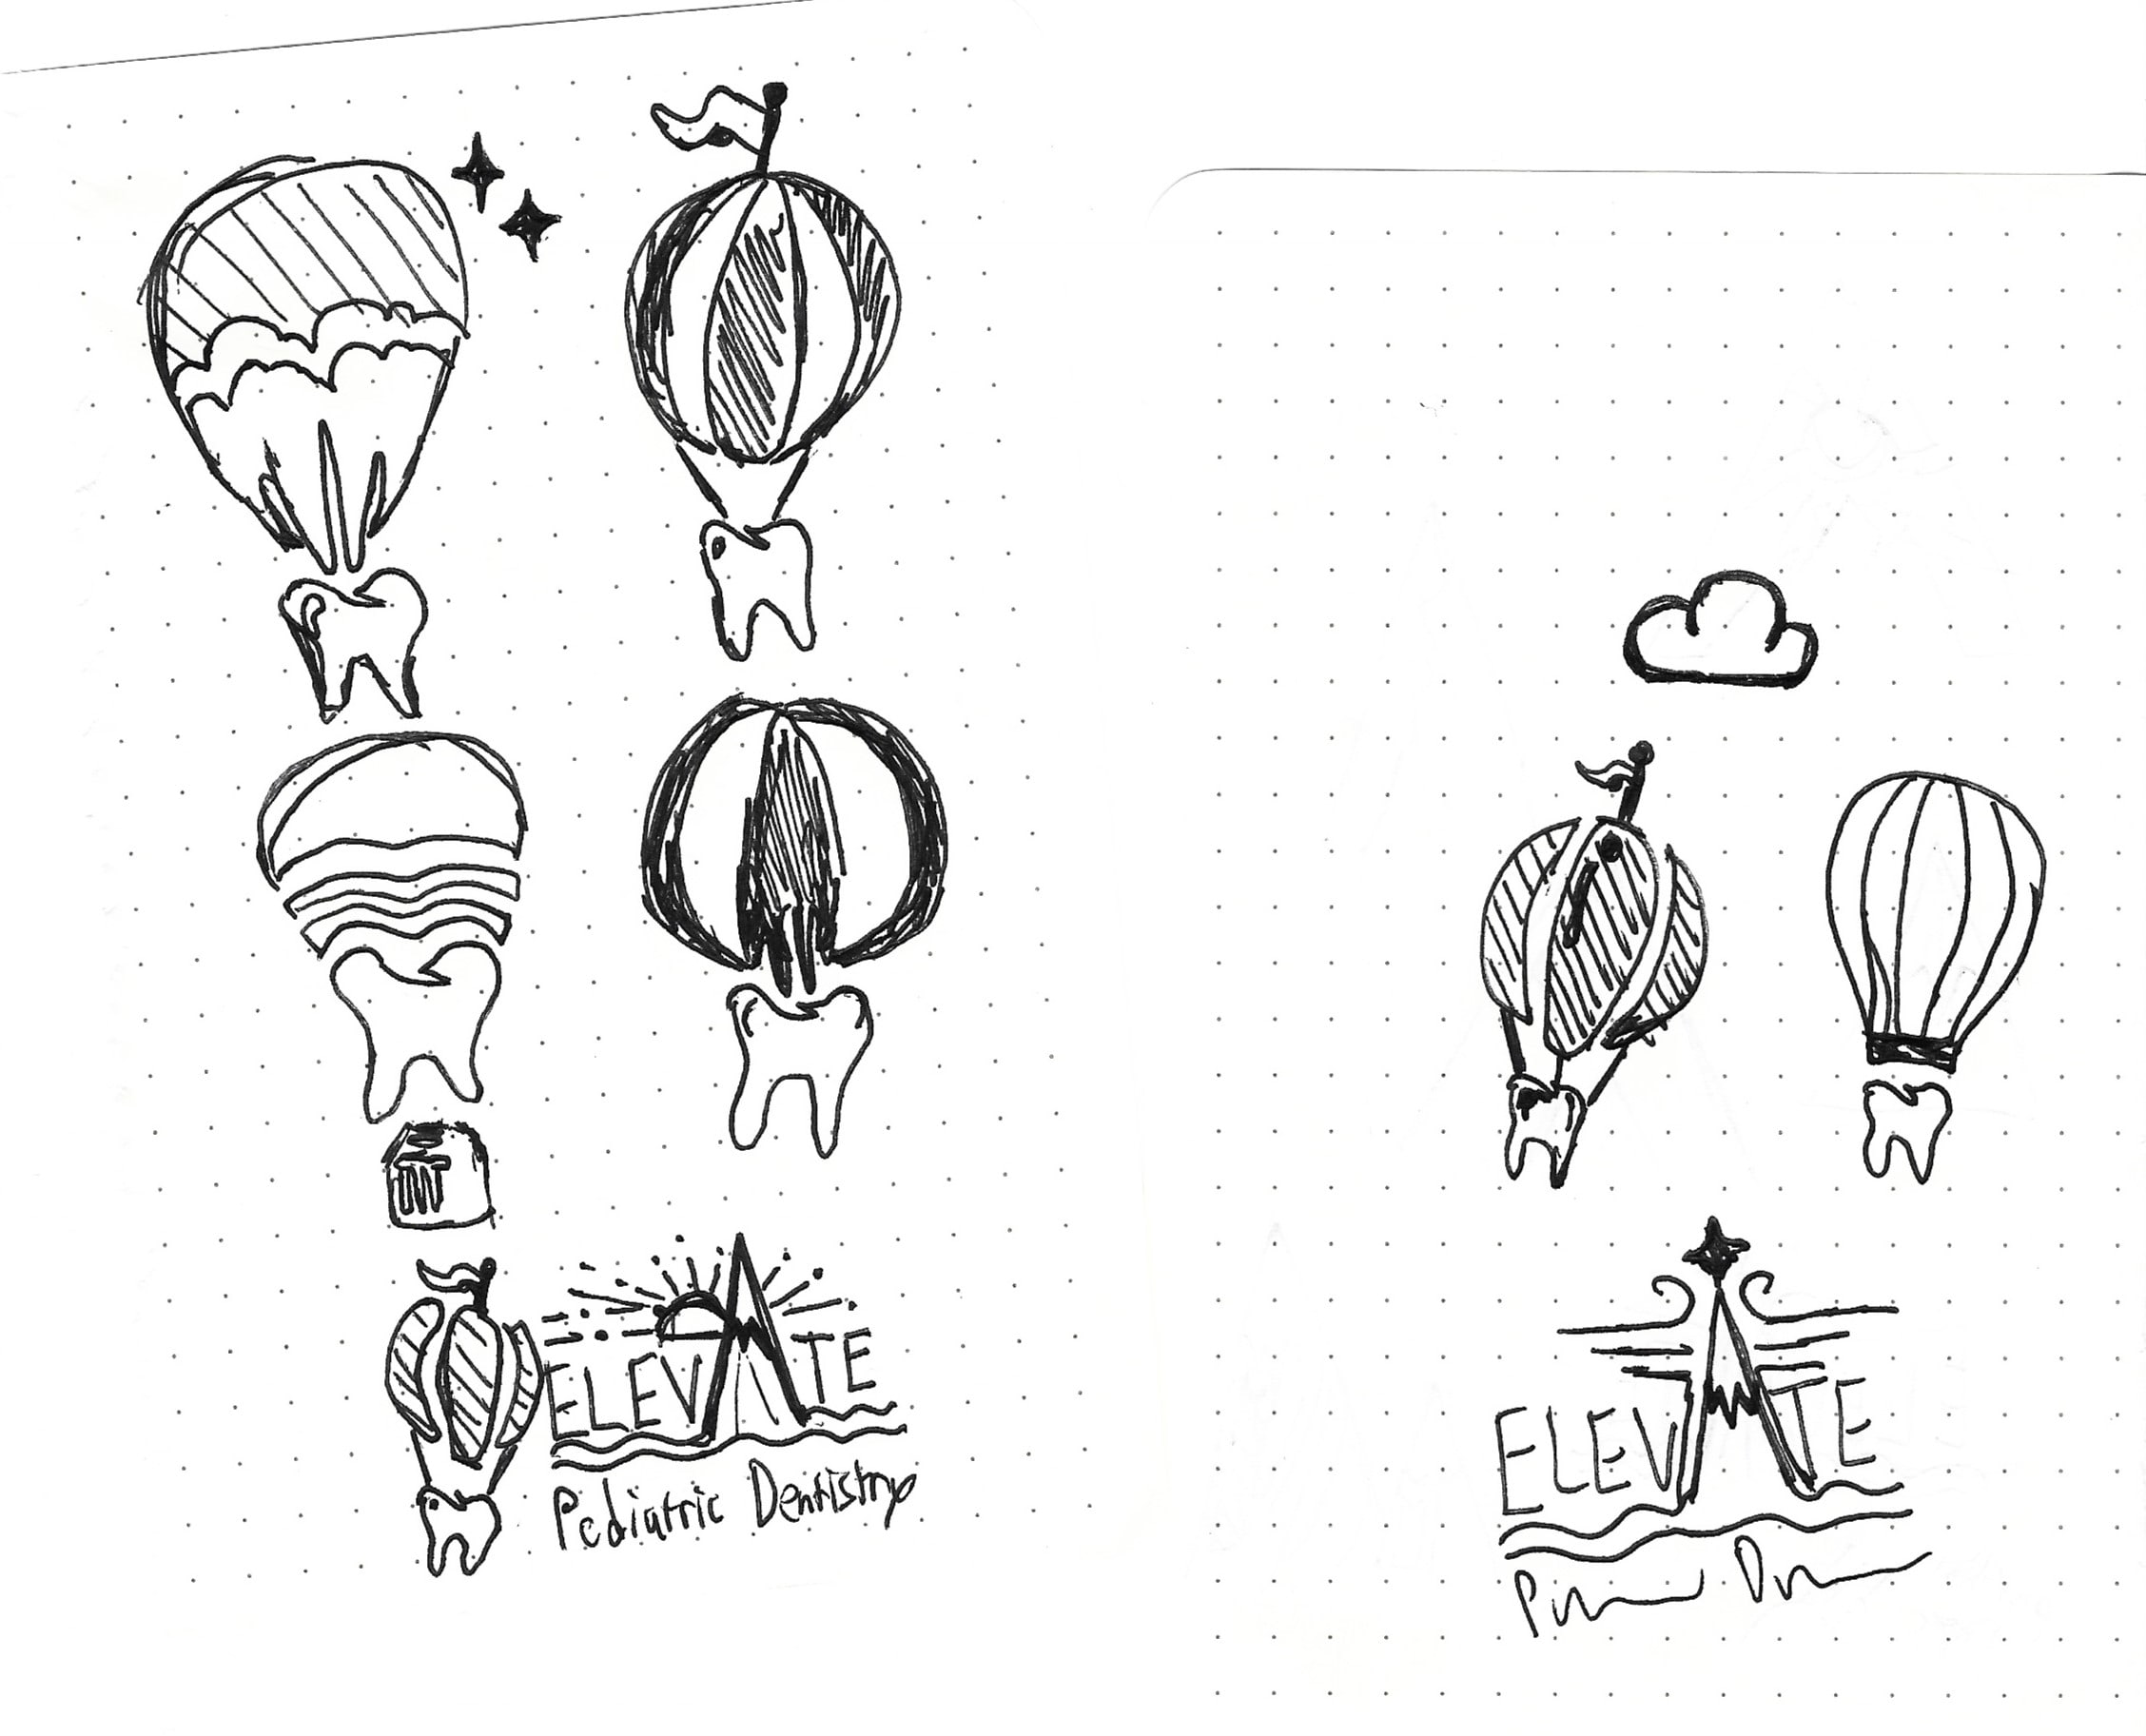 ELEVATE
Pediatric Dentistry
ELEVATE